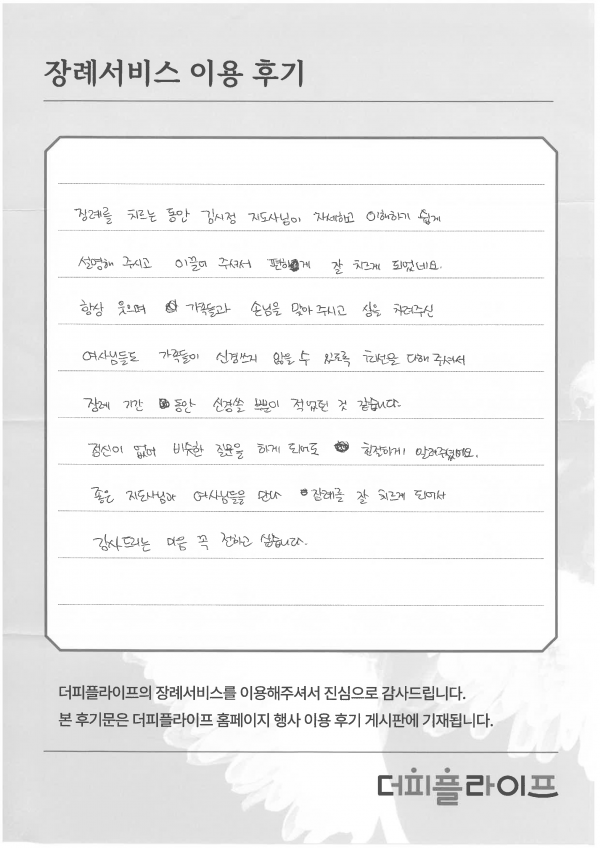 장례서비스 이용 후기
장례를 치르는 동안 김시정 지도사님이 자세하고 이해하기 쉽게
설명해 주시고 이끌어 주셔서 편하게 잘 치르게 되었네요.
항상 웃으며 가족들과 손님을 맞아 주시고 상을 차려주신
여사님들도 가족들이 신경쓰지 않을 수 있도록 최선을 다해 주셔서
장례 기간 동안 신경쓸 부분이 적었던 것 같습니다.
정신이 없어 비슷한 질문을 하게 되어도 친절하게 알려주셨네요.
좋은 지도사님과 여사님들을 만나 장례를 잘 치르게 되어서
감사드리는 마음 꼭 전하고 싶습니다.
더피플라이프의 장례서비스를 이용해주셔서 진심으로 감사드립니다.
본 후기문은 더피플라이프 홈페이지 행사 이용 후기 게시판에 기재됩니다.
더피플라이프